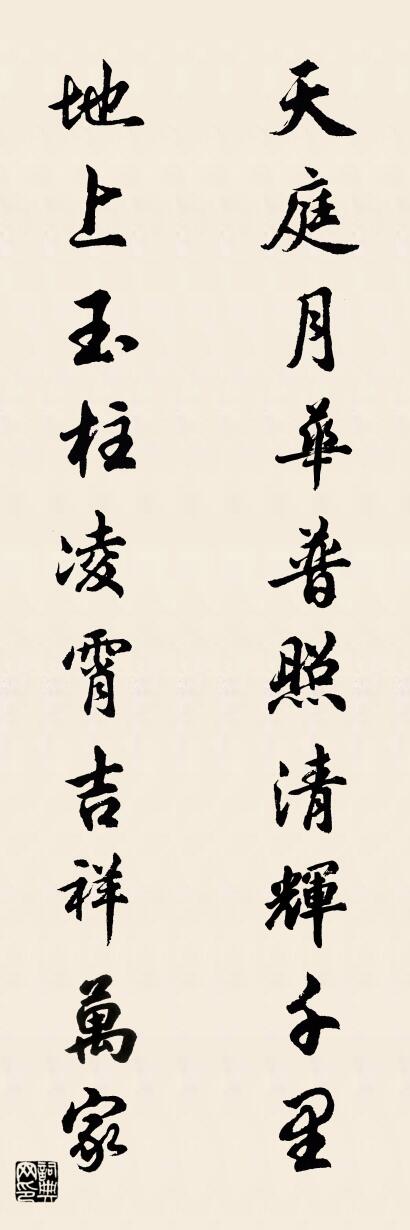 天庭月華普照清輝千里
地上玉柱凌霄吉祥萬家
詞典網印